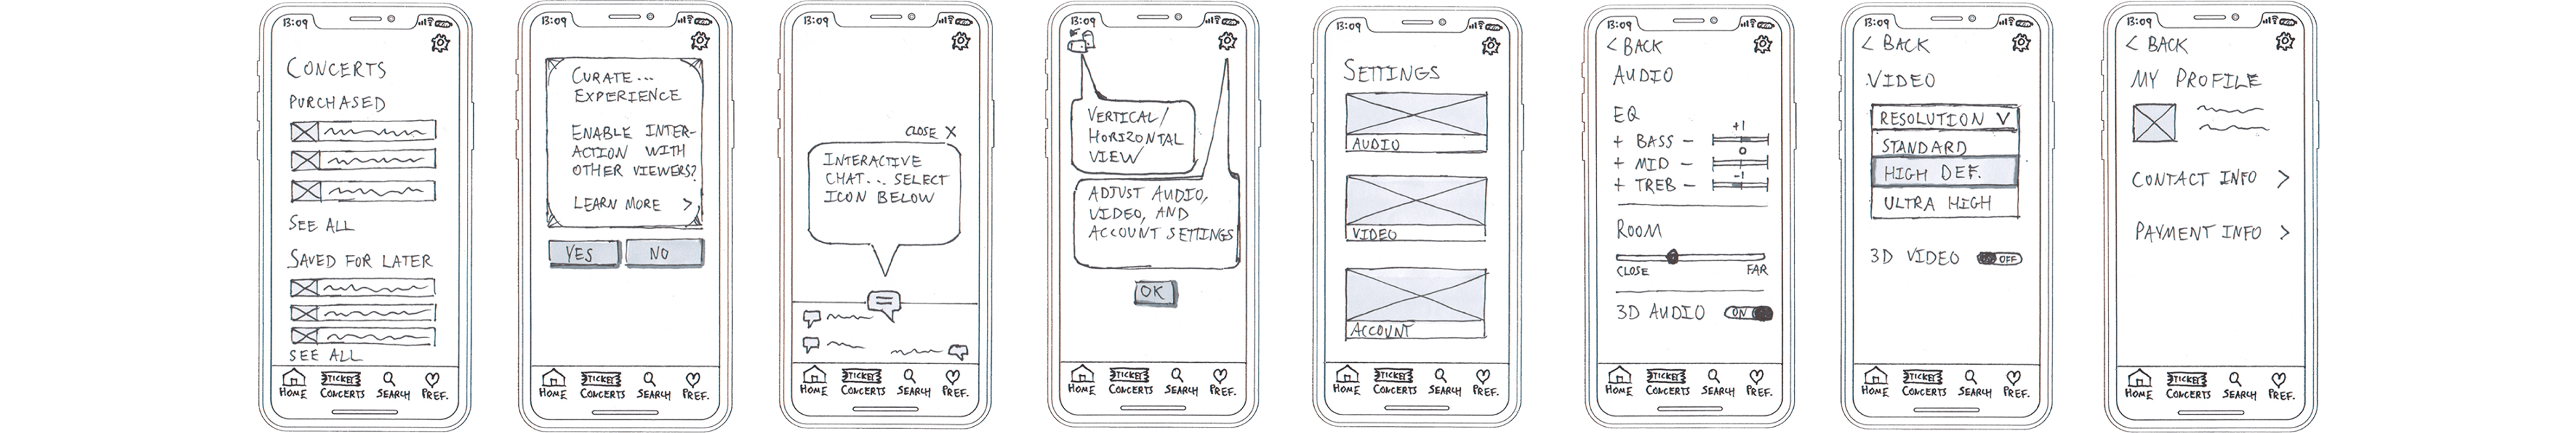 13:09
CONCERTS
PURCHASED
SEE ALL
SAVED FOR LATER
SEE ALL
HOME
TICKET
CONCERTS
SEARCH
PREF.
13:09
CURATE...
EXPERIENCE
ENABLE INTER-
ACTION WITH
OTHER VIEWERS?
LEARN MORE >
YES
NO
HOME
TICKET
CONCERTS
SEARCH
PREF.
13:09
CLOSE X
INTERACTIVE
CHAT... SELECT
ICON BELOW
HOME
TICKET
CONCERTS
SEARCH
PREF.
13:09
VERTICAL/
HORIZONTAL
VIEW
ADJUST AUDIO,
VIDEO, AND
ACCOUNT SETTINGS
OK
HOME
TICKET
CONCERTS
SEARCH
PREF.
13:09
SETTINGS
AUDIO
VIDEO
ACCOUNT
HOME
TICKET
CONCERTS
SEARCH
PREF.
13:09
< BACK
AUDIO
EQ
+1
+ BASS -
0
+ MID -
-1
+ TREB -
ROOM
CLOSE
FAR
3D AUDIO ON
HOME
TICKET
CONCERTS
SEARCH
PREF.
13:09
< BACK
VIDEO
RESOLUTION V
STANDARD
HIGH DEF.
ULTRA HIGH
3D VIDEO OFF
HOME
TICKET
CONCERTS
SEARCH
PREF.
13:09
< BACK
MY PROFILE
CONTACT INFO >
PAYMENT INFO >
HOME
TICKET
CONCERTS
SEARCH
PREF.